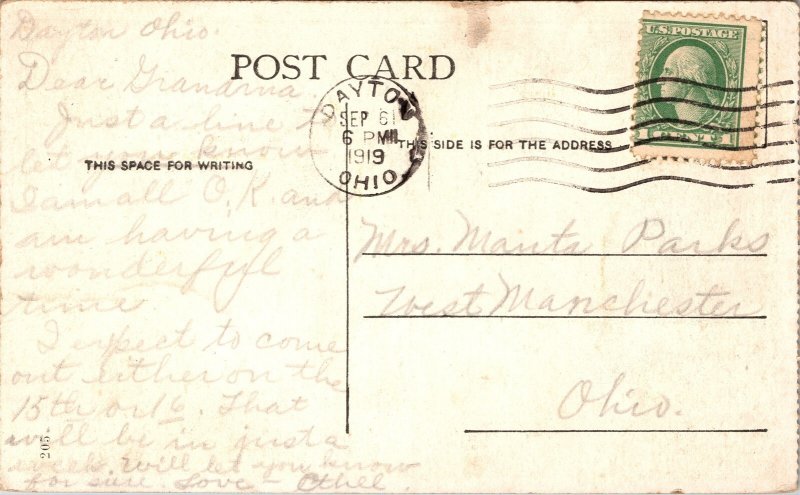 Dayton Ohio.
POST CARD
Dear Grandma.
Just a line to
let you know
THIS SPACE FOR WRITING
I am all O.K. and
am having a
wonderful
time
I expect to come
out either on the
15th or 16. That
will be in just a
week. Will let you know
for sure. Love - Othel.
205
DAYTON
SEP 6
6 PM
1919
OHIO.
U.S. POSTAGE
1 CENT 1
THIS SIDE IS FOR THE ADDRESS
Mrs. Manta Parks
West Manchester
Ohio.